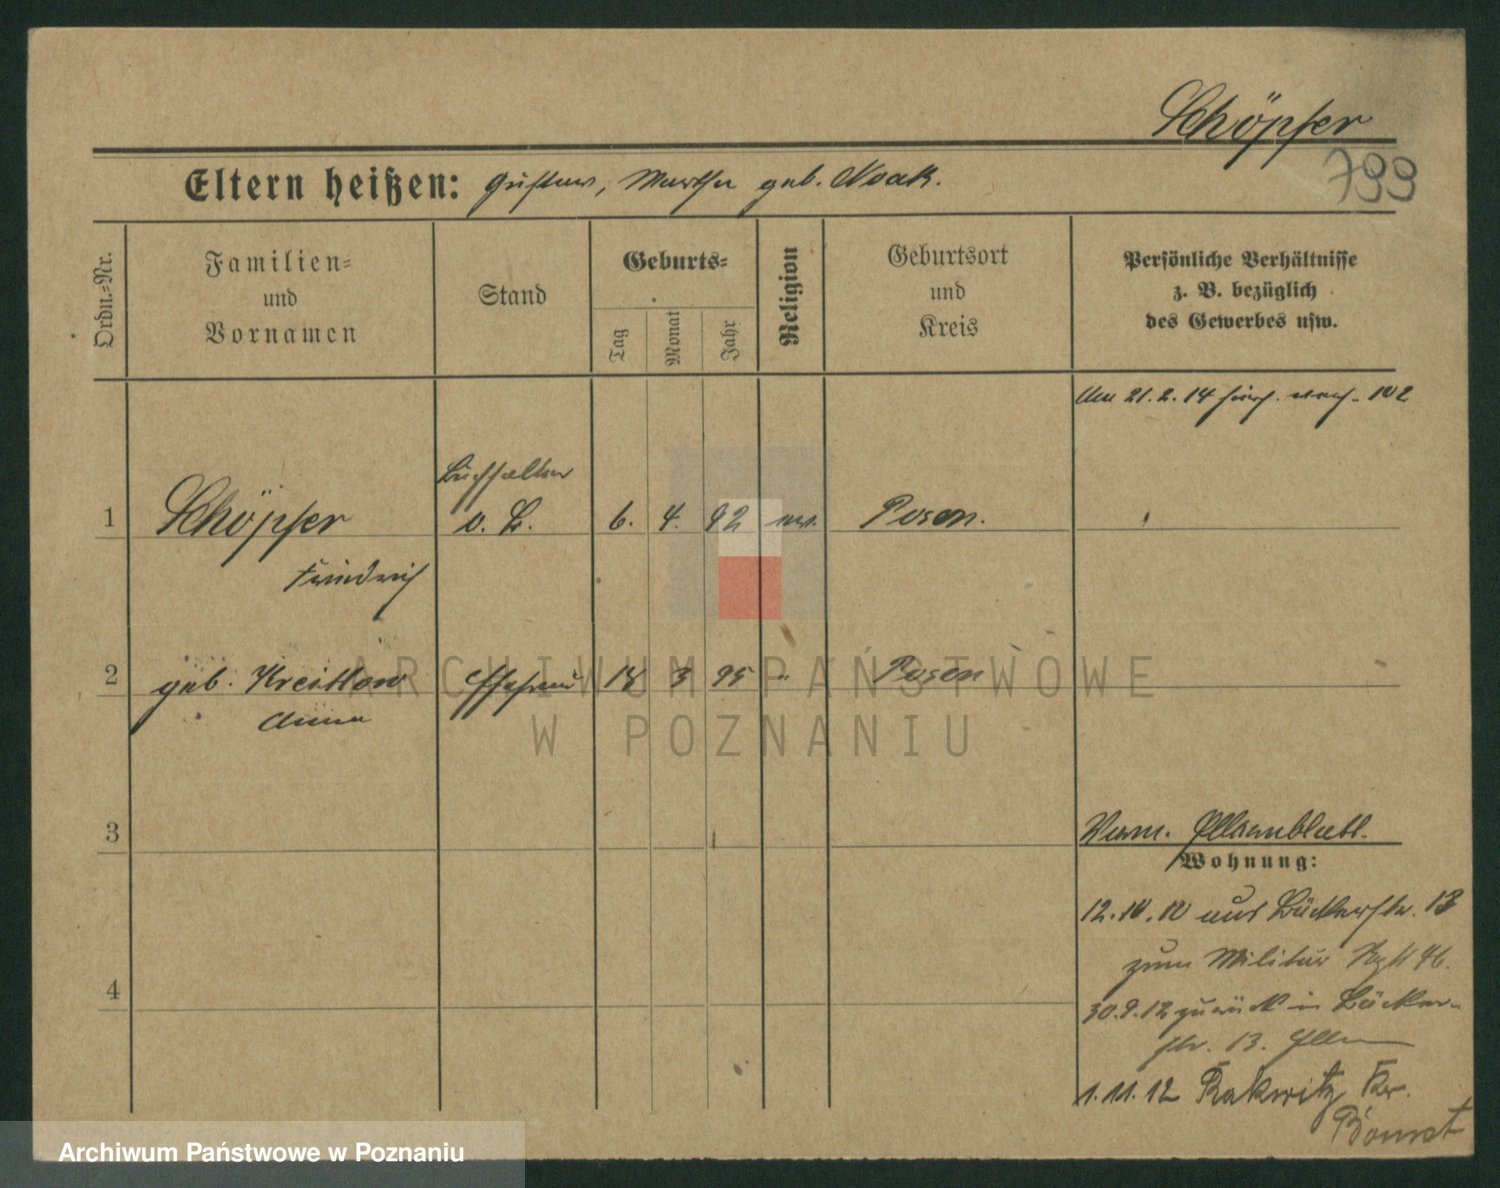 Schöpfer
799
Eltern heißen: Gustav, Martha geb. Noak.
Ordn.=Nr.
Familien=
und
Vornamen
Stand
Geburts=
Tag
Monat
Jahr
Religion
Geburtsort
und
Kreis
Persönliche Verhältnisse
z. B. bezüglich
des Gewerbes usw.
Am 21.2.14
1
Schöpfer
Friedrich
Buchhalter
6. 4. 92 ev.
Posen.
2
geb. Kreitlow
Anna
Ehefrau
18 3 95 "
Posen
3
4
Verm. Elternblatt.
Wohnung:
12.10.10 aus Bäckerstr. 13
zum Militär Rgt 46.
30.9.12 zurück in Bäcker-
str. 13. Eltern
1.11.12 Rakwitz Kr.
Bomst
ARCHIWUM PAŃSTWOWE
W POZNANIU
Archiwum Państwowe w Poznaniu